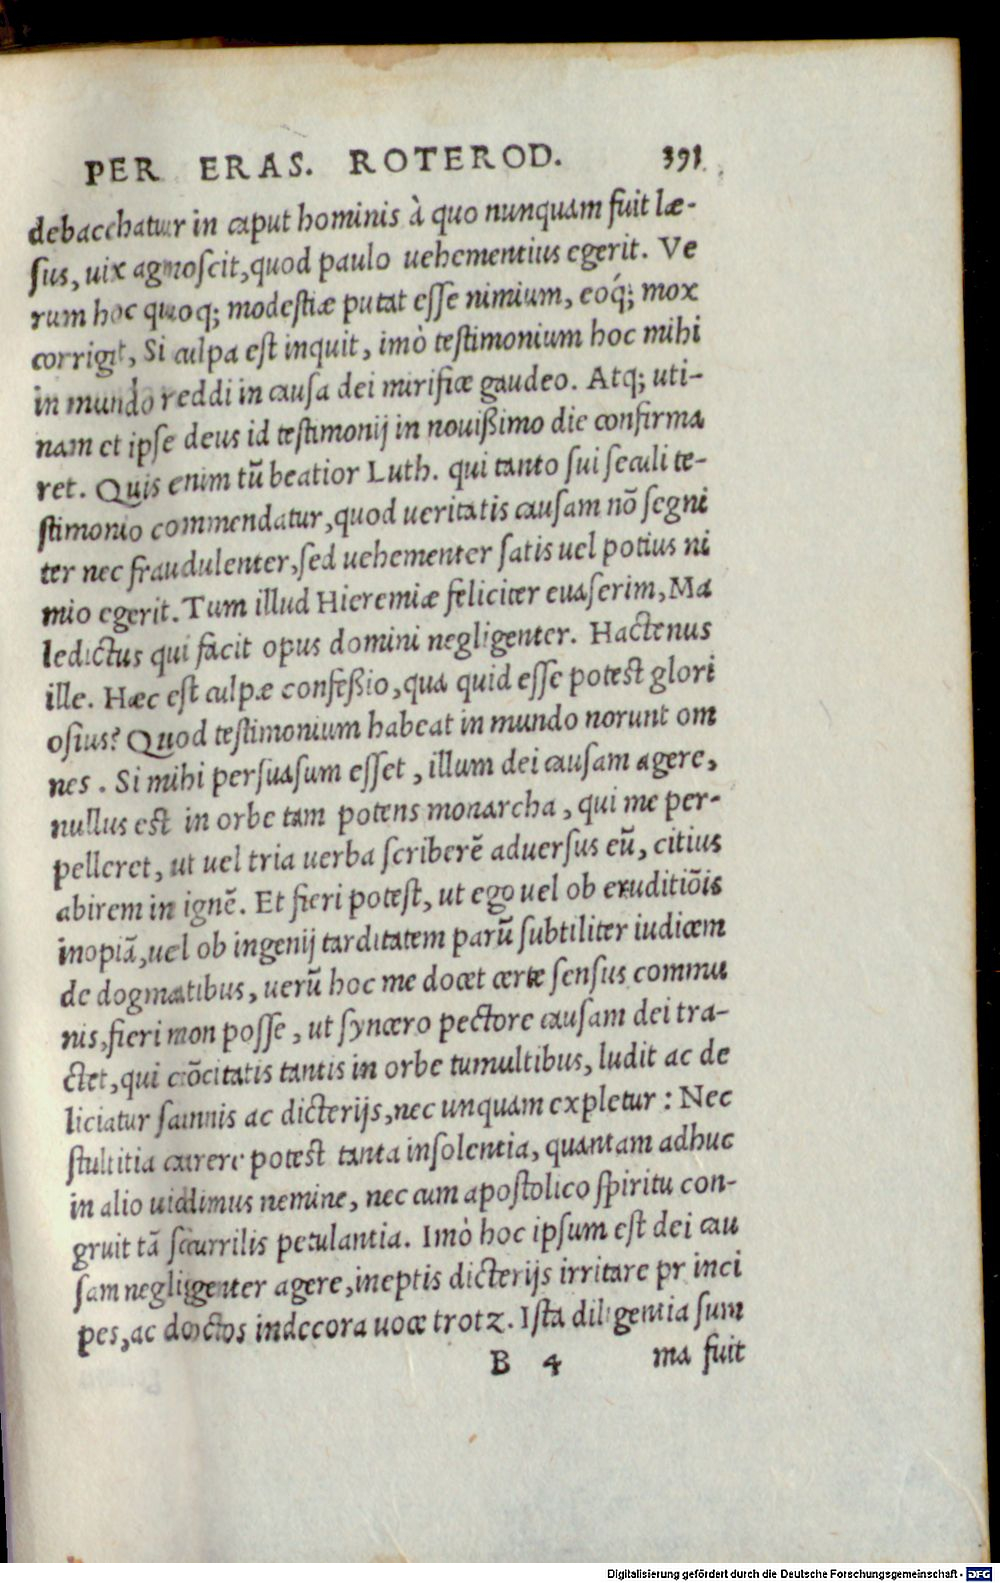 PER ERAS. ROTEROD. 391
debacchatur in caput hominis à quo nunquam fuit læ-
sus, uix agnoscit, quod paulo uehementius egerit. Ve
rum hoc quoq; modestiæ putat esse nimium, eóq́; mox
corrigit, Si culpa est inquit, imò testimonium hoc mihi
in mundo reddi in causa dei mirificæ gaudeo. Atq; uti-
nam et ipse deus id testimonij in nouißimo die confirma
ret. Quis enim tū beatior Luth. qui tanto sui seculi te-
stimonio commendatur, quod ueritatis causam nō segni
ter nec fraudulenter, sed uehementer satis uel potius ni
mio egerit. Tum illud Hieremiæ feliciter euaserim, Ma
ledictus qui facit opus domini negligenter. Hactenus
ille. Hæc est culpæ confeßio, qua quid esse potest glori
osius? Quod testimonium habeat in mundo norunt om
nes. Si mihi persuasum esset, illum dei causam agere,
nullus est in orbe tam potens monarcha, qui me per-
pelleret, ut uel tria uerba scriberē aduersus eū, citius
abirem in ignē. Et fieri potest, ut ego uel ob eruditiōis
inopiā, uel ob ingenij tarditatem parū subtiliter iudicem
de dogmatibus, uerū hoc me docet certe sensus commu
nis, fieri non posse, ut syncero pectore causam dei tra-
ctet, qui cōcitatis tantis in orbe tumultibus, ludit ac de
liciatur sannis ac dicterijs, nec unquam expletur: Nec
stultitia carere potest tanta insolentia, quantam adhuc
in alio uidimus nemine, nec cum apostolico spiritu con-
gruit tā scurrilis petulantia. Imò hoc ipsum est dei cau
sam negligenter agere, ineptis dicterijs irritare princi
pes, ac doctos indecora uoce trotz. Ista diligentia sum
B 4 ma fuit
Digitalisierung gefördert durch die Deutsche Forschungsgemeinschaft - DFG